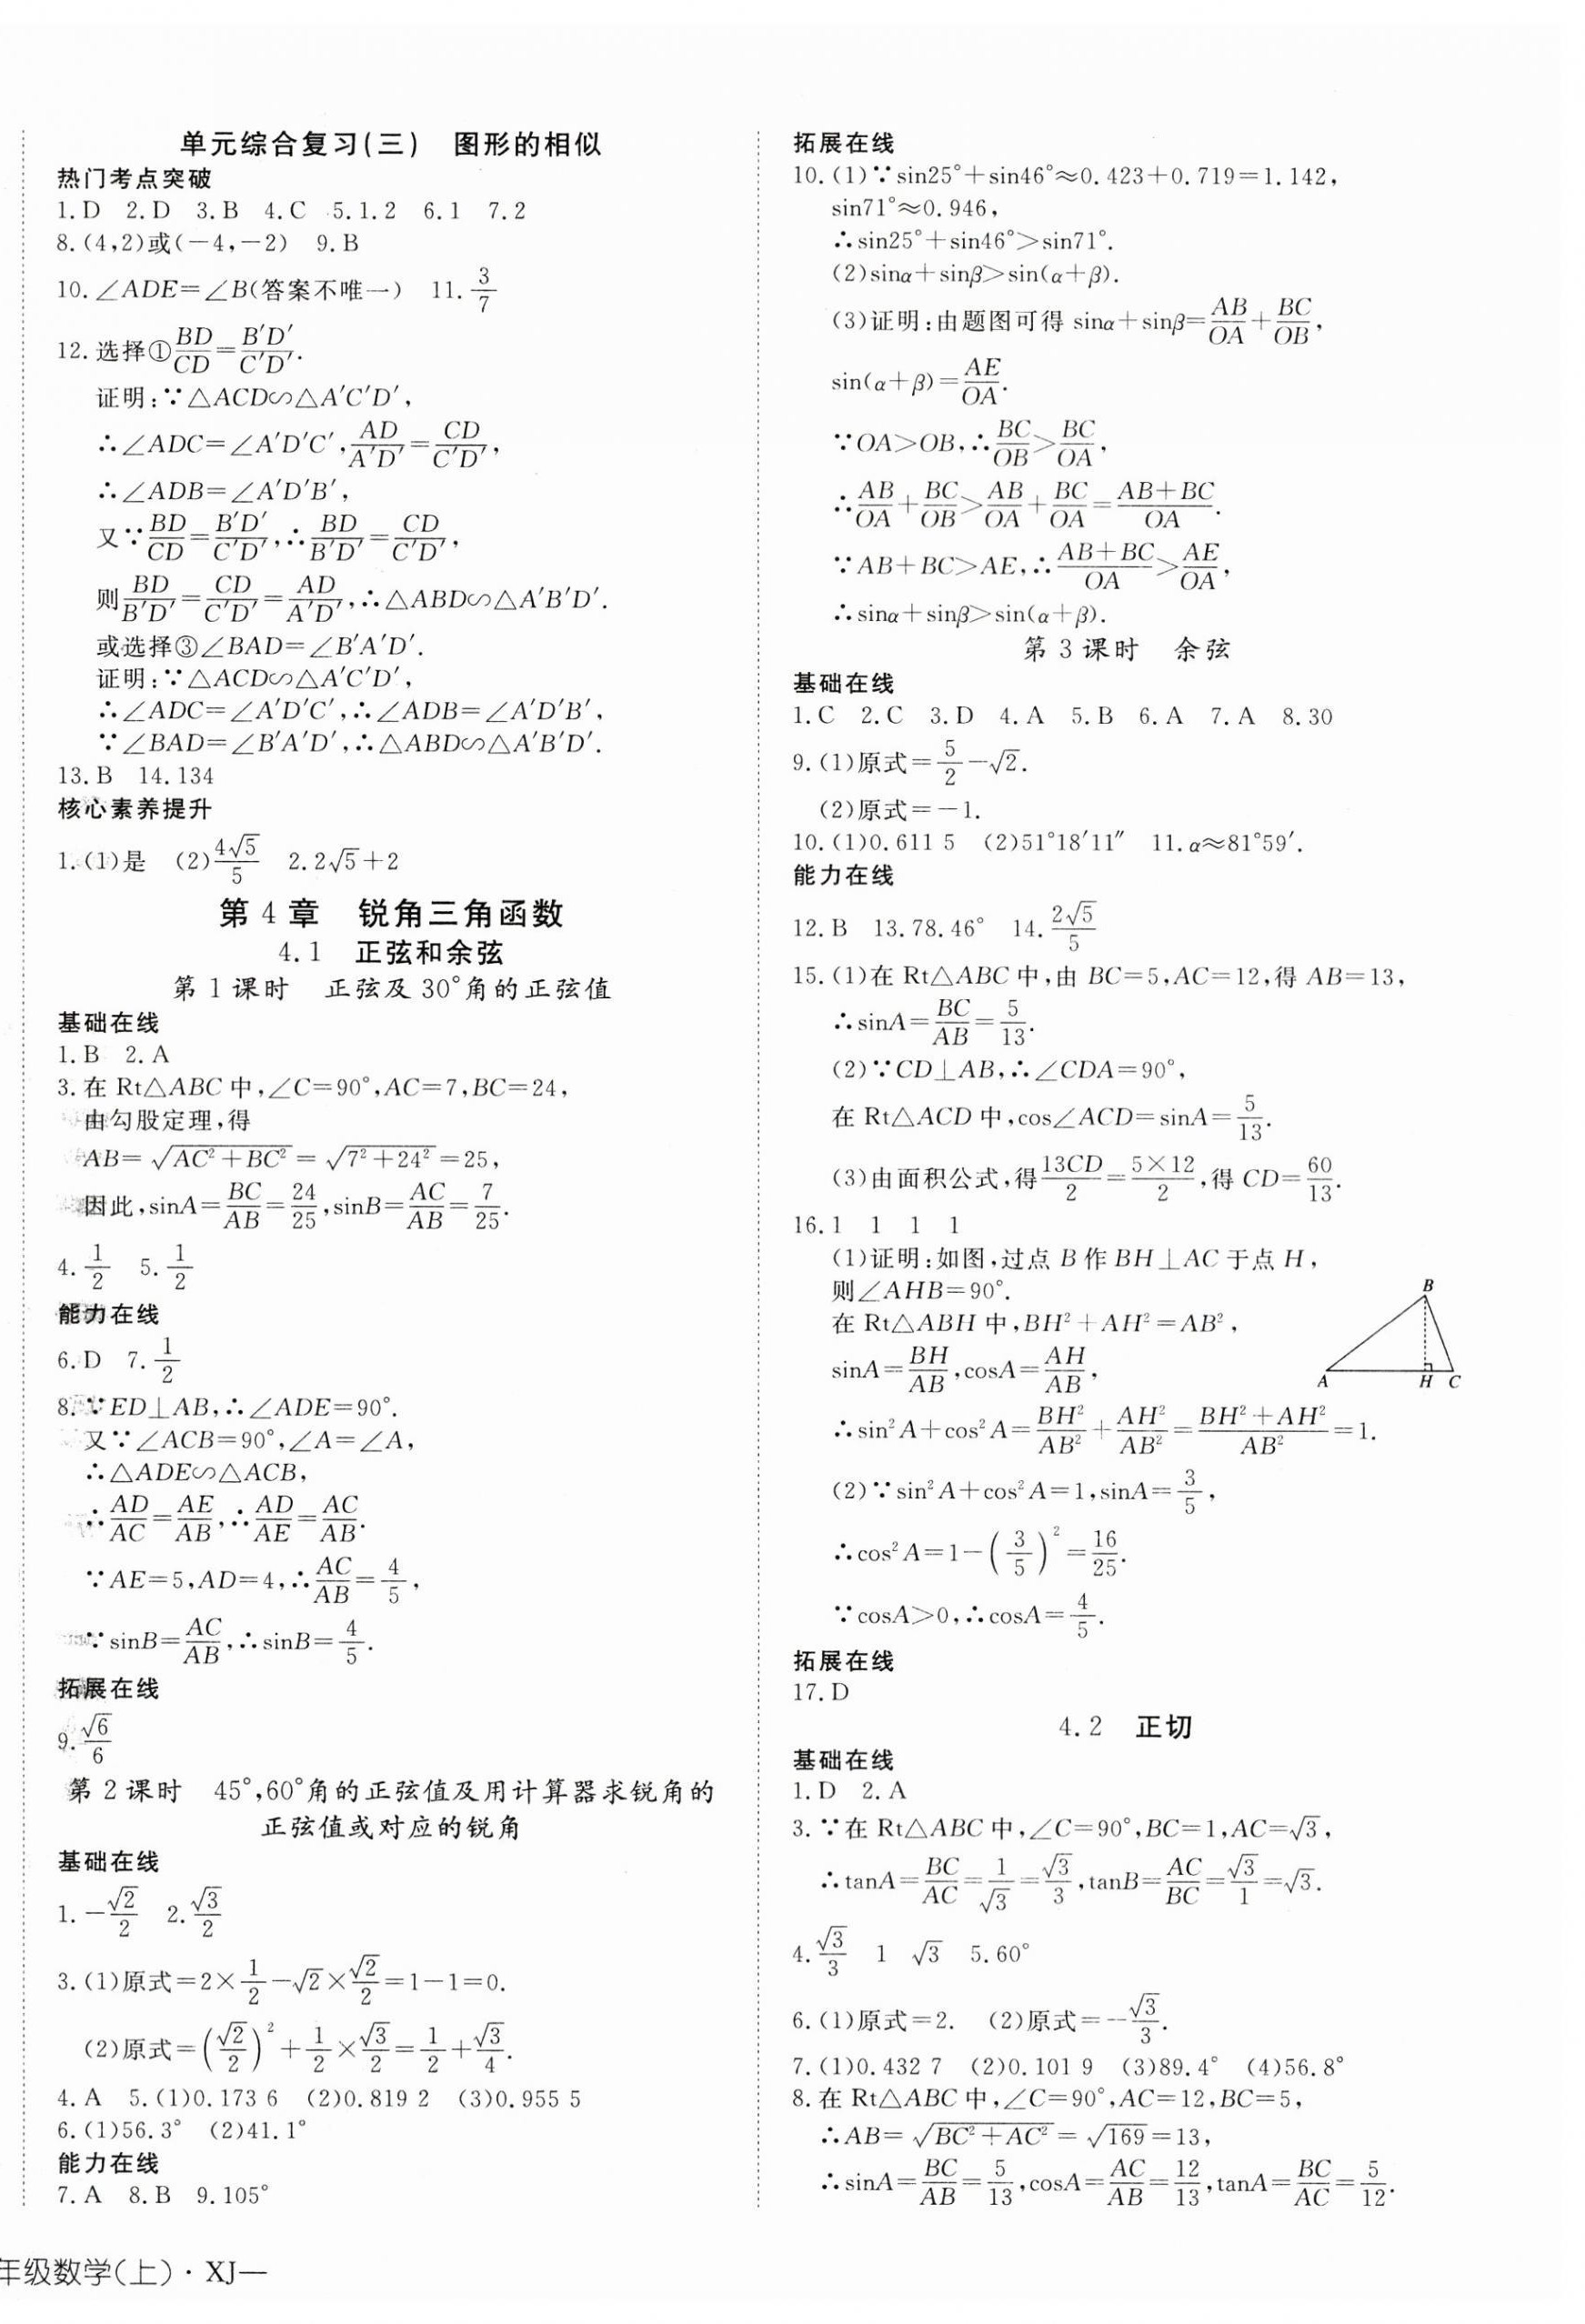 单元综合复习(三)　图形的相似
热门考点突破
1.D　2.D　3.B　4.C　5.1.2　6.1　7.2
8.(4,2)或(-4,-2)　9.B
10.∠ADE=∠B(答案不唯一)　11.3/7
12.选择①BD/CD=B′D′/C′D′.
证明:∵△ACD∽△A′C′D′,
∴∠ADC=∠A′D′C′,AD/A′D′=CD/C′D′,
∴∠ADB=∠A′D′B′,
又∵BD/CD=B′D′/C′D′,∴BD/B′D′=CD/C′D′,
则BD/B′D′=CD/C′D′=AD/A′D′,∴△ABD∽△A′B′D′.
或选择③∠BAD=∠B′A′D′.
证明:∵△ACD∽△A′C′D′,
∴∠ADC=∠A′D′C′,∴∠ADB=∠A′D′B′,
∵∠BAD=∠B′A′D′,∴△ABD∽△A′B′D′.
13.B　14.134
核心素养提升
1.(1)是　(2)4√5/5　2.2√5+2
第 4 章　锐角三角函数
4.1　正弦和余弦
第 1 课时　正弦及 30°角的正弦值
基础在线
1.B　2.A
3.在 Rt△ABC 中,∠C=90°,AC=7,BC=24,
由勾股定理,得
AB=√(AC²+BC²)=√(7²+24²)=25,
因此,sinA=BC/AB=24/25,sinB=AC/AB=7/25.
4.1/2　5.1/2
能力在线
6.D　7.1/2
8.∵ED⊥AB,∴∠ADE=90°.
又∵∠ACB=90°,∠A=∠A,
∴△ADE∽△ACB,
∴AD/AC=AE/AB,∴AD/AE=AC/AB.
∵AE=5,AD=4,∴AC/AB=4/5,
∵sinB=AC/AB,∴sinB=4/5.
拓展在线
9.√6/6
第 2 课时　45°,60°角的正弦值及用计算器求锐角的
正弦值或对应的锐角
基础在线
1.-√2/2　2.√3/2
3.(1)原式=2×1/2-√2×√2/2=1-1=0.
(2)原式=(√2/2)²+1/2×√3/2=1/2+√3/4.
4.A　5.(1)0.173 6　(2)0.819 2　(3)0.955 5
6.(1)56.3°　(2)41.1°
能力在线
7.A　8.B　9.105°
年级数学(上)·XJ—
拓展在线
10.(1)∵sin25°+sin46°≈0.423+0.719=1.142,
sin71°≈0.946,
∴sin25°+sin46°>sin71°.
(2)sinα+sinβ>sin(α+β).
(3)证明:由题图可得 sinα+sinβ=AB/OA+BC/OB,
sin(α+β)=AE/OA.
∵OA>OB,∴BC/OB>BC/OA,
∴AB/OA+BC/OB>AB/OA+BC/OA=(AB+BC)/OA.
∵AB+BC>AE,∴(AB+BC)/OA>AE/OA,
∴sinα+sinβ>sin(α+β).
第 3 课时　余弦
基础在线
1.C　2.C　3.D　4.A　5.B　6.A　7.A　8.30
9.(1)原式=5/2-√2.
(2)原式=-1.
10.(1)0.611 5　(2)51°18′11″　11.α≈81°59′.
能力在线
12.B　13.78.46°　14.2√5/5
15.(1)在 Rt△ABC 中,由 BC=5,AC=12,得 AB=13,
∴sinA=BC/AB=5/13.
(2)∵CD⊥AB,∴∠CDA=90°,
在 Rt△ACD 中,cos∠ACD=sinA=5/13.
(3)由面积公式,得13CD/2=5×12/2,得 CD=60/13.
16.1　1　1　1
(1)证明:如图,过点 B 作 BH⊥AC 于点 H,
则∠AHB=90°.
在 Rt△ABH 中,BH²+AH²=AB²,
sinA=BH/AB,cosA=AH/AB,
B
A　H　C
∴sin²A+cos²A=BH²/AB²+AH²/AB²=(BH²+AH²)/AB²=1.
(2)∵sin²A+cos²A=1,sinA=3/5,
∴cos²A=1-(3/5)²=16/25.
∵cosA>0,∴cosA=4/5.
拓展在线
17.D
4.2　正切
基础在线
1.D　2.A
3.∵在 Rt△ABC 中,∠C=90°,BC=1,AC=√3,
∴tanA=BC/AC=1/√3=√3/3,tanB=AC/BC=√3/1=√3.
4.√3/3　1　√3　5.60°
6.(1)原式=2.　(2)原式=-√3/3.
7.(1)0.432 7　(2)0.101 9　(3)89.4°　(4)56.8°
8.在 Rt△ABC 中,∠C=90°,AC=12,BC=5,
∴AB=√(BC²+AC²)=√169=13,
∴sinA=BC/AB=5/13,cosA=AC/AB=12/13,tanA=BC/AC=5/12.